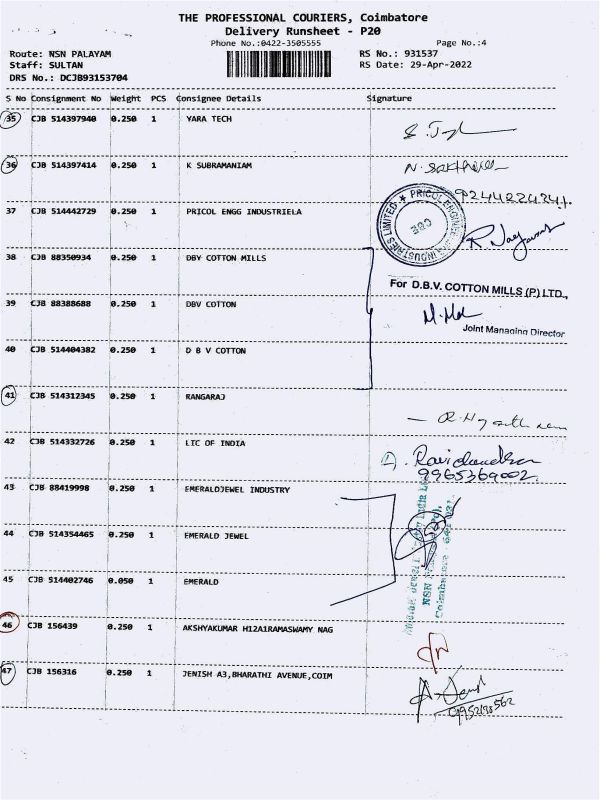 THE PROFESSIONAL COURIERS, Coimbatore
Delivery Runsheet - P20
Phone No.:0422-3505555 Page No.:4
Route: NSN PALAYAM RS No.: 931537
Staff: SULTAN RS Date: 29-Apr-2022
DRS No.: DCJB93153704
S No Consignment No Weight PCS Consignee Details Signature
35 CJB 514397940 0.250 1 YARA TECH
36 CJB 514397414 0.250 1 K SUBRAMANIAM
37 CJB 514442729 0.250 1 PRICOL ENGG INDUSTRIELA
38 CJB 88350934 0.250 1 DBY COTTON MILLS
For D.B.V. COTTON MILLS (P) LTD.,
39 CJB 88388688 0.250 1 DBV COTTON
Joint Managing Director
40 CJB 514404382 0.250 1 D B V COTTON
41 CJB 514312345 0.250 1 RANGARAJ
42 CJB 514332726 0.250 1 LIC OF INDIA
Ravichandran
9965369002
43 CJB 88419998 0.250 1 EMERALDJEWEL INDUSTRY
44 CJB 514354465 0.250 1 EMERALD JEWEL
45 CJB 514402746 0.050 1 EMERALD
46 CJB 156439 0.250 1 AKSHYAKUMAR H12A1RAMASWAMY NAG
47 CJB 156316 0.250 1 JENISH A3,BHARATHI AVENUE,COIM